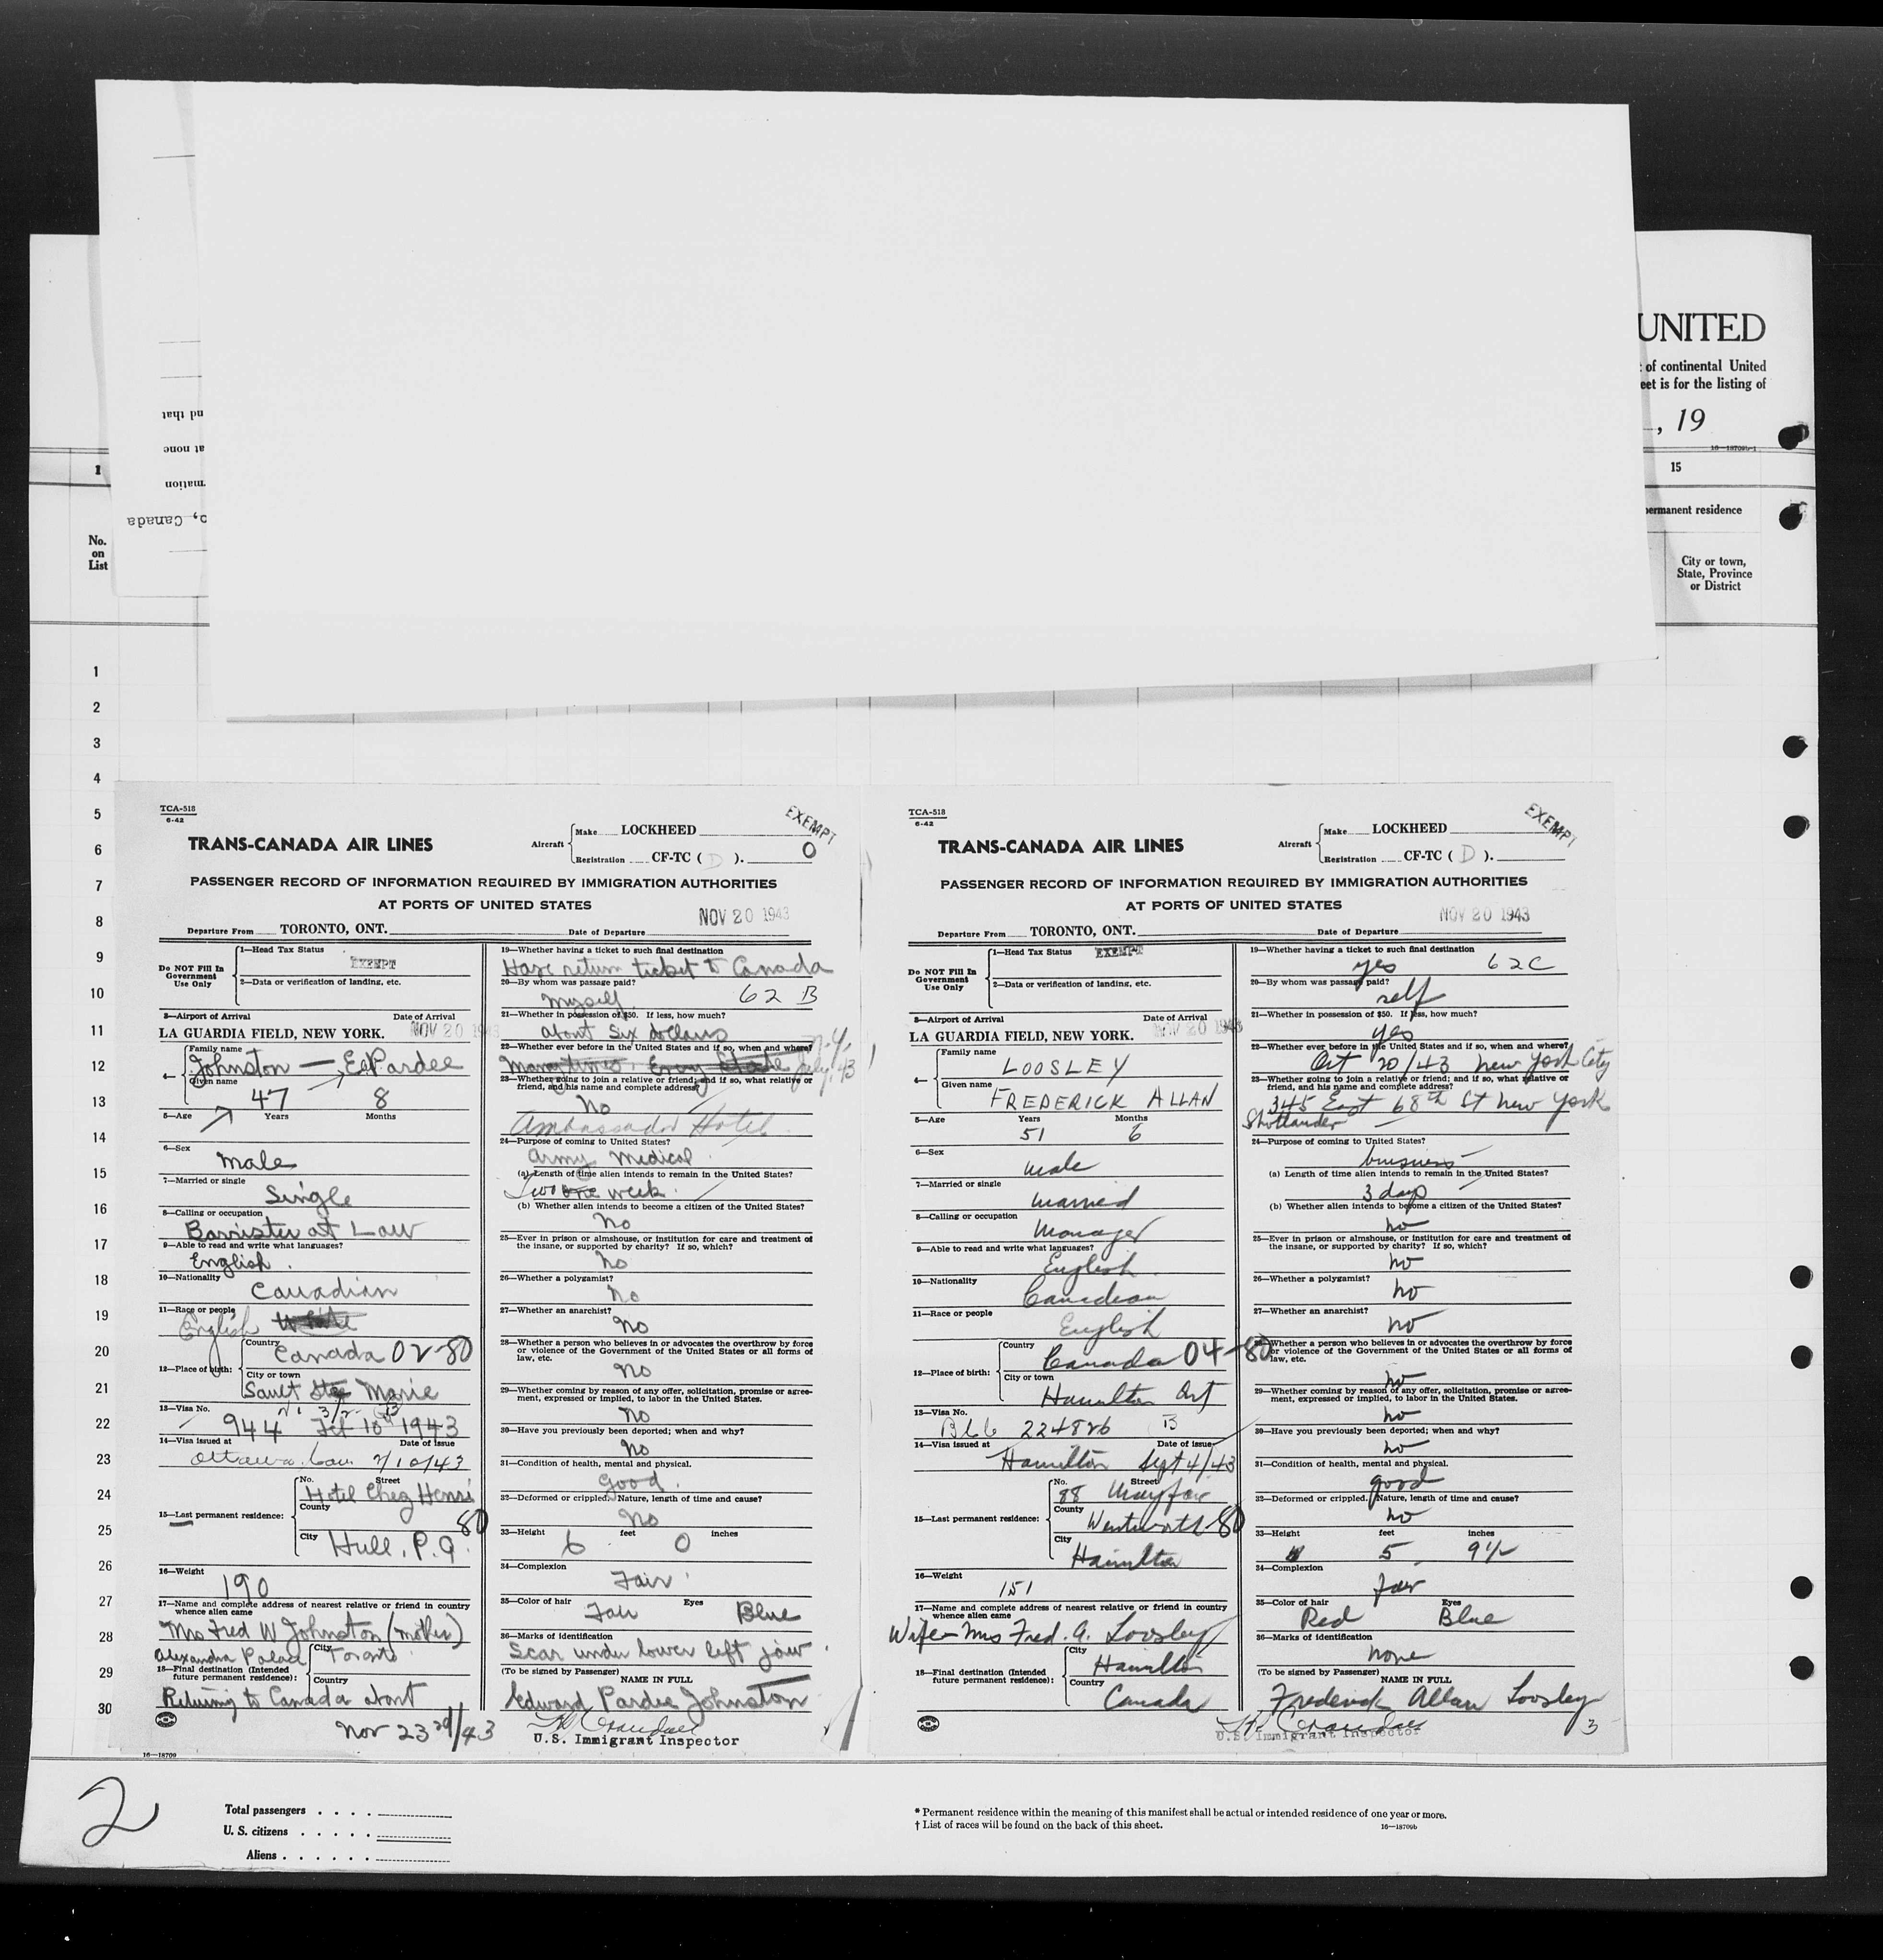 UNITED
of continental United
eet is for the listing of
, 19
16-18709b-1
1
15
ermanent residence
No.
on
List
City or town,
State, Province
or District
nd that
at none
mation
o, Canada
1
2
3
4
5
6
7
8
9
10
11
12
13
14
15
16
17
18
19
20
21
22
23
24
25
26
27
28
29
30
TCA-518
6-42
TRANS-CANADA AIR LINES
Aircraft
Make LOCKHEED
Registration CF-TC ( D ).
EXEMPT
0
PASSENGER RECORD OF INFORMATION REQUIRED BY IMMIGRATION AUTHORITIES
AT PORTS OF UNITED STATES
NOV 20 1943
Departure From TORONTO, ONT. Date of Departure
Do NOT Fill In
Government
Use Only
1—Head Tax Status
EXEMPT
2—Data or verification of landing, etc.
3—Airport of Arrival Date of Arrival
LA GUARDIA FIELD, NEW YORK. NOV 20 1943
4—
Family name
Johnston — E Pardee
Given name
47 8
5—Age Years Months
6—Sex
male
7—Married or single
Single
8—Calling or occupation
Barrister at Law
9—Able to read and write what languages?
English.
10—Nationality
Canadian
11—Race or people
English White
12—Place of birth:
Country
Canada 02-80
City or town
Sault Ste Marie
13—Visa No.
944 Feb 10th 1943
14—Visa issued at Date of issue
Ottawa. Can. 2/10/43
15—Last permanent residence:
No. Street
Hotel Chez Henri
County
80
City
Hull, P.Q.
16—Weight
190
17—Name and complete address of nearest relative or friend in country
whence alien came
Mrs Fred W Johnston (mother)
Alexandra Palace
City
Toronto
18—Final destination (Intended
future permanent residence):
Country
Returning to Canada about
Nov 23rd/43
19—Whether having a ticket to such final destination
Have return ticket to Canada
20—By whom was passage paid?
Myself 62 B
21—Whether in possession of $50. If less, how much?
about Six dollars
22—Whether ever before in the United States and if so, when and where?
Many times. Every State
N.Y. July, 43
23—Whether going to join a relative or friend; and if so, what relative or
friend, and his name and complete address?
No
Ambassador Hotel
24—Purpose of coming to United States?
Army Medical
(a) Length of time alien intends to remain in the United States?
Two one week.
(b) Whether alien intends to become a citizen of the United States?
No
25—Ever in prison or almshouse, or institution for care and treatment of
the insane, or supported by charity? If so, which?
No
26—Whether a polygamist?
No
27—Whether an anarchist?
No
28—Whether a person who believes in or advocates the overthrow by force
or violence of the Government of the United States or all forms of
law, etc.
No
29—Whether coming by reason of any offer, solicitation, promise or agree-
ment, expressed or implied, to labor in the United States.
No
30—Have you previously been deported; when and why?
No
31—Condition of health, mental and physical.
Good.
32—Deformed or crippled. Nature, length of time and cause?
No
33—Height feet inches
6 0
34—Complexion
Fair
35—Color of hair Eyes
Fair Blue
36—Marks of identification
Scar under lower left jaw.
(To be signed by Passenger) NAME IN FULL
Edward Pardee Johnston
U.S. Immigrant Inspector
TCA-518
6-42
TRANS-CANADA AIR LINES
Aircraft
Make LOCKHEED
Registration CF-TC ( D ).
EXEMPT
PASSENGER RECORD OF INFORMATION REQUIRED BY IMMIGRATION AUTHORITIES
AT PORTS OF UNITED STATES
NOV 20 1943
Departure From TORONTO, ONT. Date of Departure
Do NOT Fill In
Government
Use Only
1—Head Tax Status EXEMPT
2—Data or verification of landing, etc.
3—Airport of Arrival Date of Arrival
LA GUARDIA FIELD, NEW YORK. NOV 20 1943
4—
Family name
LOOSLEY
Given name
FREDERICK ALLAN
5—Age Years Months
51 6
6—Sex
male
7—Married or single
married
8—Calling or occupation
Manager
9—Able to read and write what languages?
English.
10—Nationality
Canadian
11—Race or people
English
12—Place of birth:
Country
Canada 04-80
City or town
Hamilton Ont
13—Visa No.
B66 224826 B
14—Visa issued at Date of issue
Hamilton Sept 4/43
15—Last permanent residence:
No. Street
88 Mayfair
County
Wentworth 80
City
Hamilton
16—Weight
151
17—Name and complete address of nearest relative or friend in country
whence alien came
Wife—Mrs Fred. A. Loosley
City
Hamilton
18—Final destination (Intended
future permanent residence):
Country
Canada
19—Whether having a ticket to such final destination
yes 62C
20—By whom was passage paid?
self
21—Whether in possession of $50. If less, how much?
yes
22—Whether ever before in the United States and if so, when and where?
Oct 20/43 New York City
23—Whether going to join a relative or friend; and if so, what relative or
friend, and his name and complete address?
345 East 68th St New York
24—Purpose of coming to United States?
business
(a) Length of time alien intends to remain in the United States?
3 days
(b) Whether alien intends to become a citizen of the United States?
no
25—Ever in prison or almshouse, or institution for care and treatment of
the insane, or supported by charity? If so, which?
no
26—Whether a polygamist?
no
27—Whether an anarchist?
no
Whether a person who believes in or advocates the overthrow by force
or violence of the Government of the United States or all forms of
law, etc.
no
29—Whether coming by reason of any offer, solicitation, promise or agree-
ment, expressed or implied, to labor in the United States.
no
30—Have you previously been deported; when and why?
no
31—Condition of health, mental and physical.
good
32—Deformed or crippled. Nature, length of time and cause?
no
33—Height feet inches
5 9 1/2
34—Complexion
fair
35—Color of hair Eyes
Red Blue
36—Marks of identification
none
(To be signed by Passenger) NAME IN FULL
Frederick Allan Loosley
3
U.S. Immigrant Inspector
16-18709
2
Total passengers
U. S. citizens
Aliens
* Permanent residence within the meaning of this manifest shall be actual or intended residence of one year or more.
† List of races will be found on the back of this sheet.
16-18709b